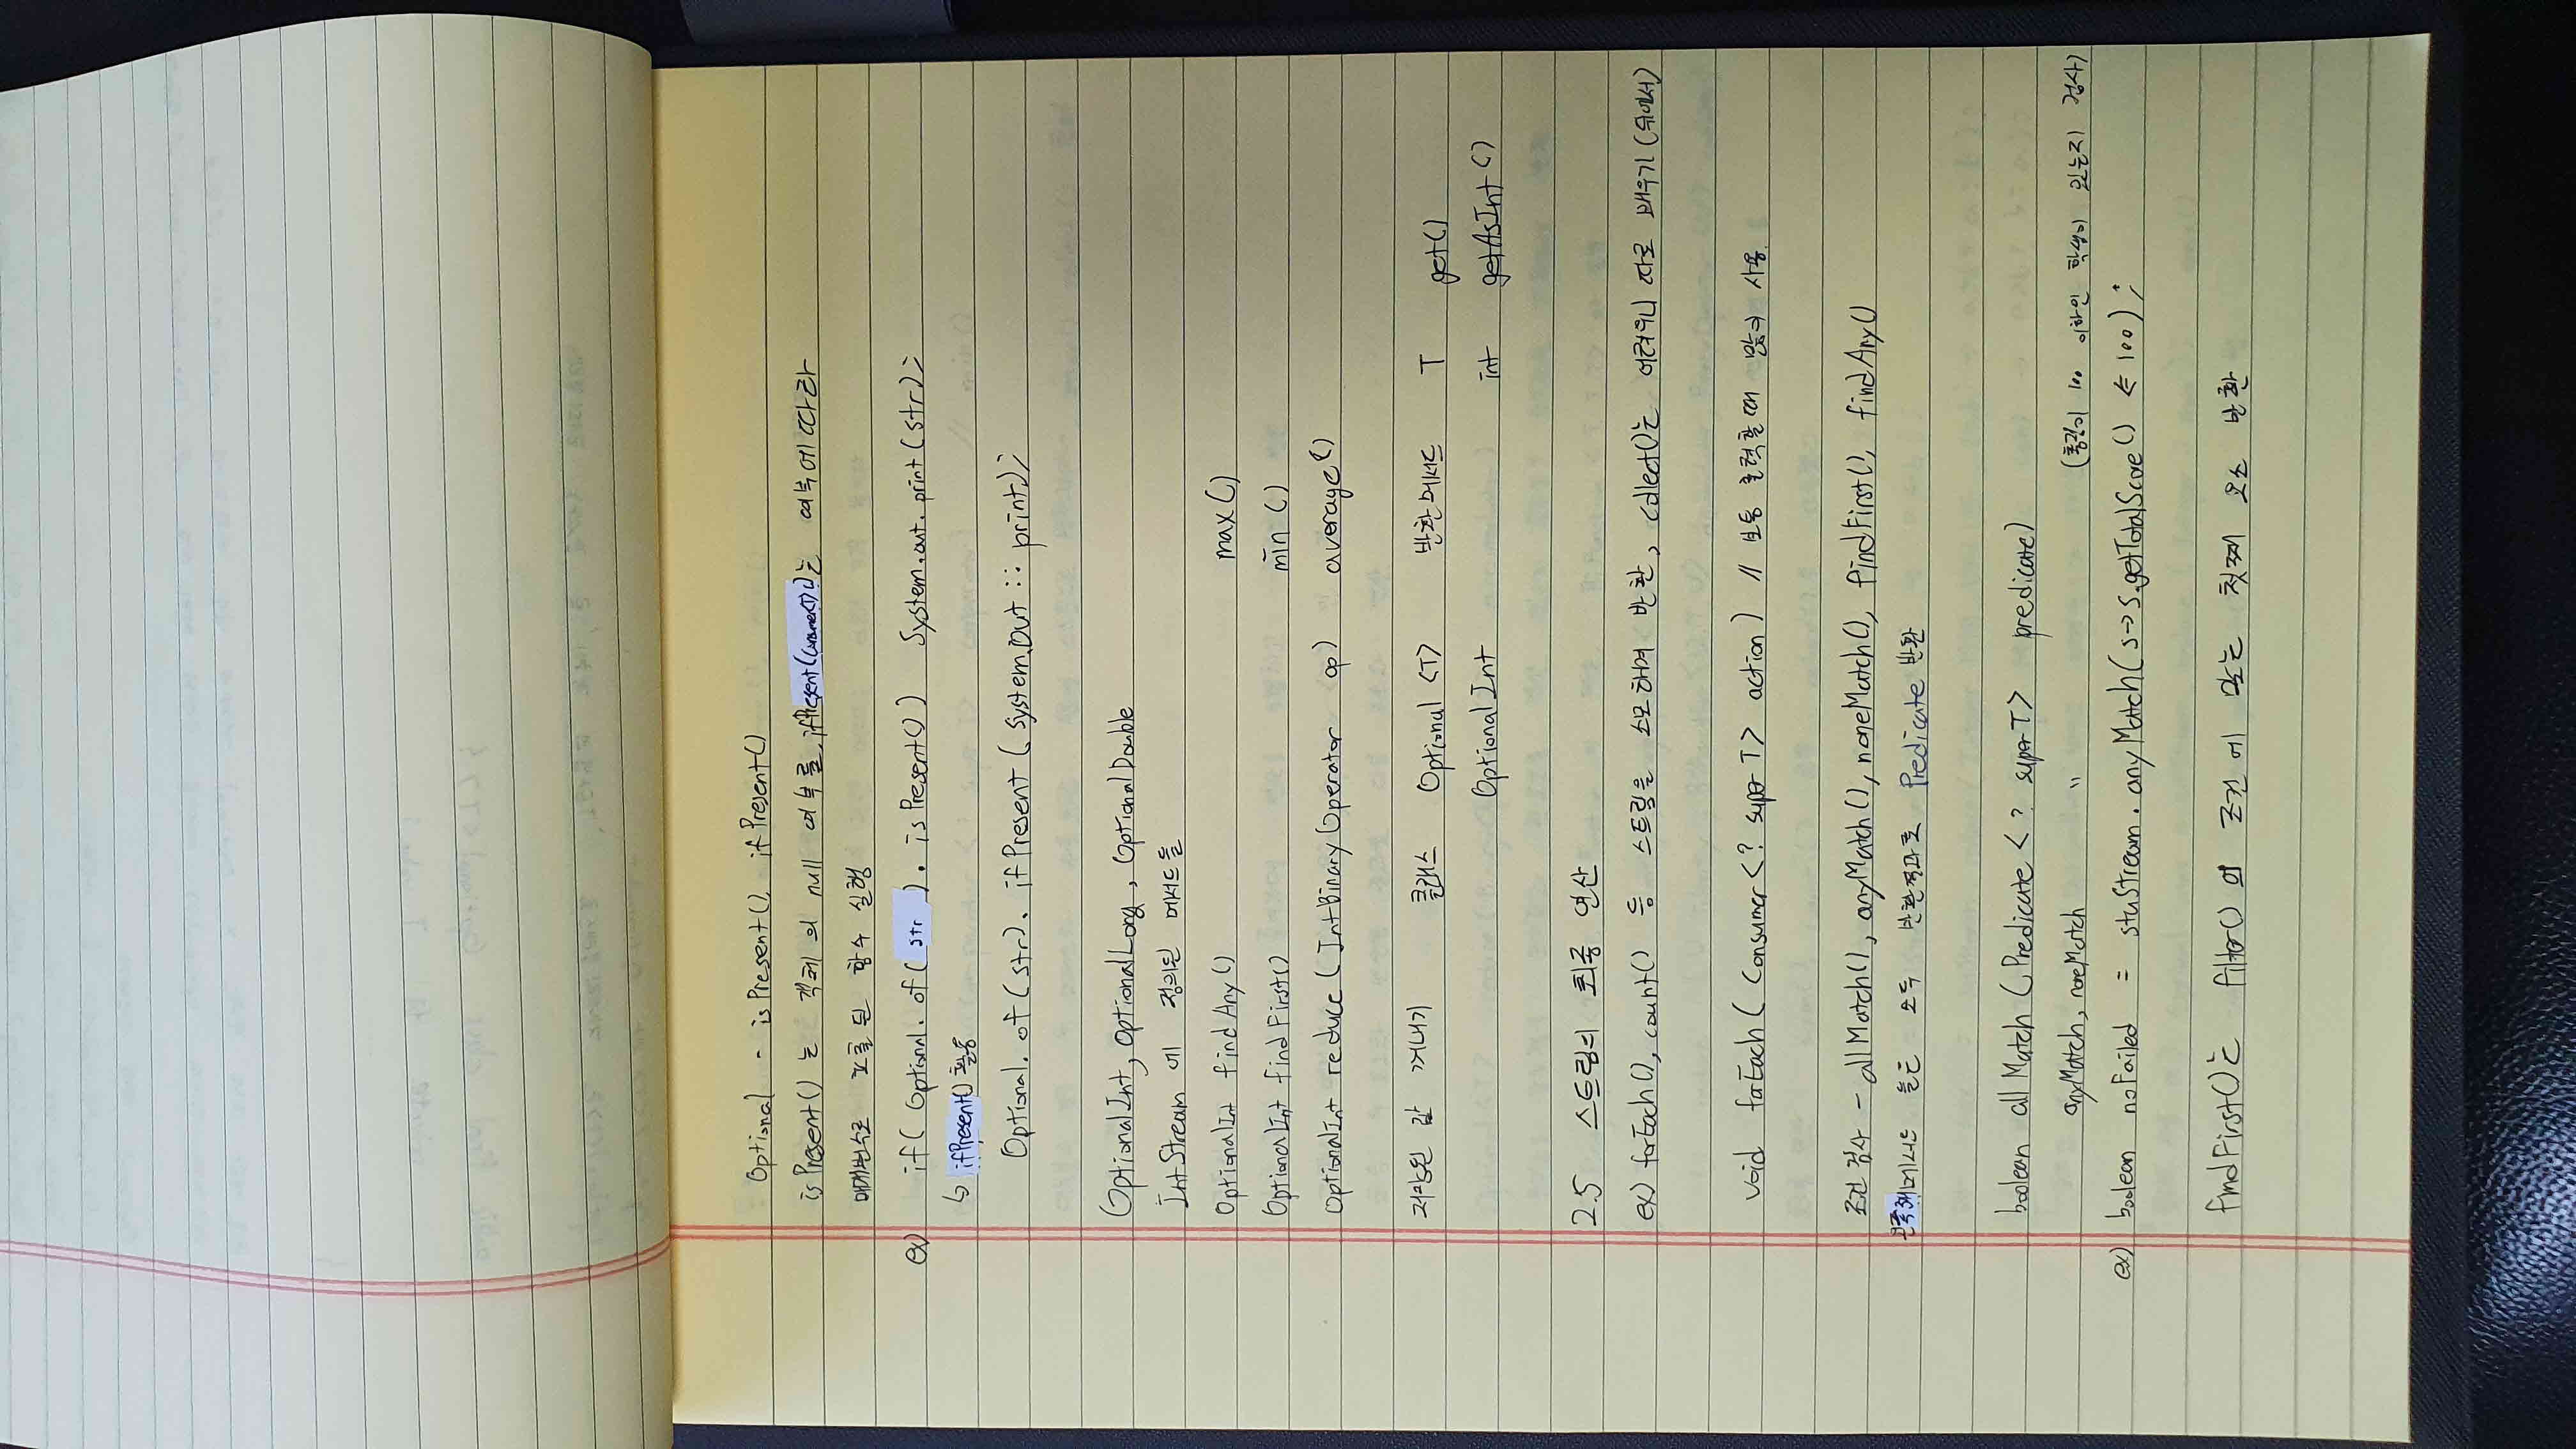 Optional - isPresent(), ifPresent()
isPresent() 는 객체의 null 여부를, ifPresent(Consumer<T>)는 여부에 따라
매개변수로 포출된 함수 실행
ex) if( Optional. of( str ). isPresent() ) System.out.print(str);
↳ ifPresent() 활용
Optional. of (str). ifPresent ( System.out :: print);
OptionalInt, OptionalLong, OptionalDouble
IntStream 에 정의된 메서드들
OptionalInt findAny() max()
OptionalInt findFirst() min ()
OptionalInt reduce ( IntBinaryOperator op) average()
저장된 값 꺼내기 클래스 Optional <T> 반환메서드 T get()
Optional Int int getAsInt()
2.5 스트림의 최종 연산
ex) forEach(), count() 등 스트림을 소모하여 반환, collect()는 어려우니 따로 배우기 (뒤에서)
void forEach ( Consumer <? super T> action ) // 보통 출력할때 많이 사용.
조건 검사 - allMatch(), anyMatch(), noneMatch(), findFirst(), findAny()
메서드 들은 모두 반환결과로 Predicate 반환
boolean allMatch (Predicate < ? super T> predicate)
anyMatch, noneMatch " (총점이 100 이하인 학생이 있는지 검사)
ex) boolean noFailed = stuStream. anyMatch( s→s.getTotalScore() ≤ 100 );
findFirst()는 filter() 의 조건 에 맞는 첫째 요소 반환